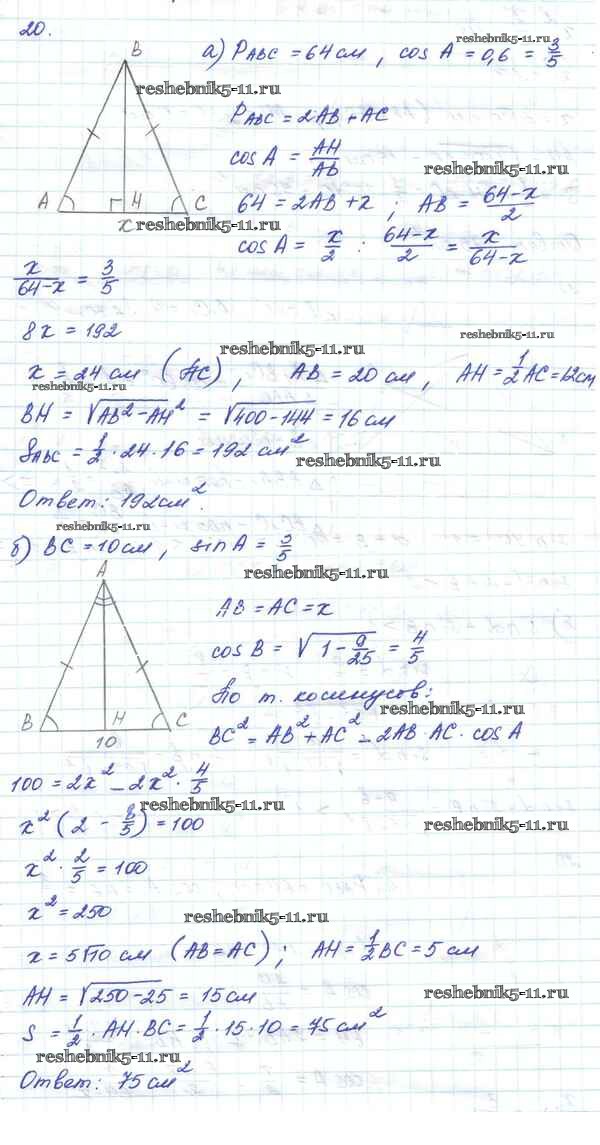 20.
reshebnik5-11.ru
а) P_ABC = 64 см, cos A = 0,6 = 3/5
B
reshebnik5-11.ru
P_ABC = 2AB + AC
cos A = AH/AB
reshebnik5-11.ru
A H C
64 = 2AB + x ; AB = (64-x)/2
x
reshebnik5-11.ru
cos A = x/2 : (64-x)/2 = x/(64-x)
x/(64-x) = 3/5
8x = 192
reshebnik5-11.ru
reshebnik5-11.ru
x = 24 см (AC), AB = 20 см, AH = 1/2 AC = 12см
reshebnik5-11.ru
BH = √(AB²-AH²) = √(400-144) = 16 см
S_ABC = 1/2 · 24 · 16 = 192 см²
reshebnik5-11.ru
Ответ: 192 см².
reshebnik5-11.ru
б) BC = 10 см, sin A = 3/5
reshebnik5-11.ru
A
AB = AC = x
cos B = √(1 - 9/25) = 4/5
По т. косинусов:
reshebnik5-11.ru
B H C
BC² = AB² + AC² - 2AB·AC·cos A
10
100 = 2x² - 2x² · 4/5
reshebnik5-11.ru
x² (2 - 8/5) = 100
reshebnik5-11.ru
x² · 2/5 = 100
x² = 250
reshebnik5-11.ru
x = 5√10 см (AB = AC) ; AH = 1/2 BC = 5 см
AH = √(250-25) = 15 см
reshebnik5-11.ru
S = 1/2 · AH · BC = 1/2 · 15 · 10 = 75 см²
reshebnik5-11.ru
Ответ: 75 см²